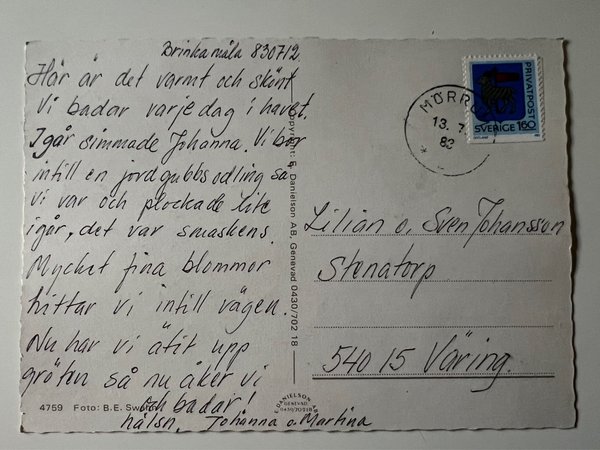 Brinkamåla 830712
Här är det varmt och skönt
Vi badar varje dag i havet.
Igår simmade Johanna. Vi bor
intill en jordgubbsodling så
vi var och plockade lite
igår, det var smaskens.
Mycket fina blommor
hittar vi intill vägen.
Nu har vi ätit upp
gröten så nu åker vi
och badar!
hälsn. Johanna o. Martina
4759 Foto: B.E.
Copyright: E. Danielson AB, Genevad 0430/702 18
E. DANIELSON AB
GENEVAD
0430/70218
MÖRR
13. 7
83
PRIVATPOST
SVERIGE 160
GOTLAND
Lilian o. Sven Johansson
Stenatorp
540 15 Väring.